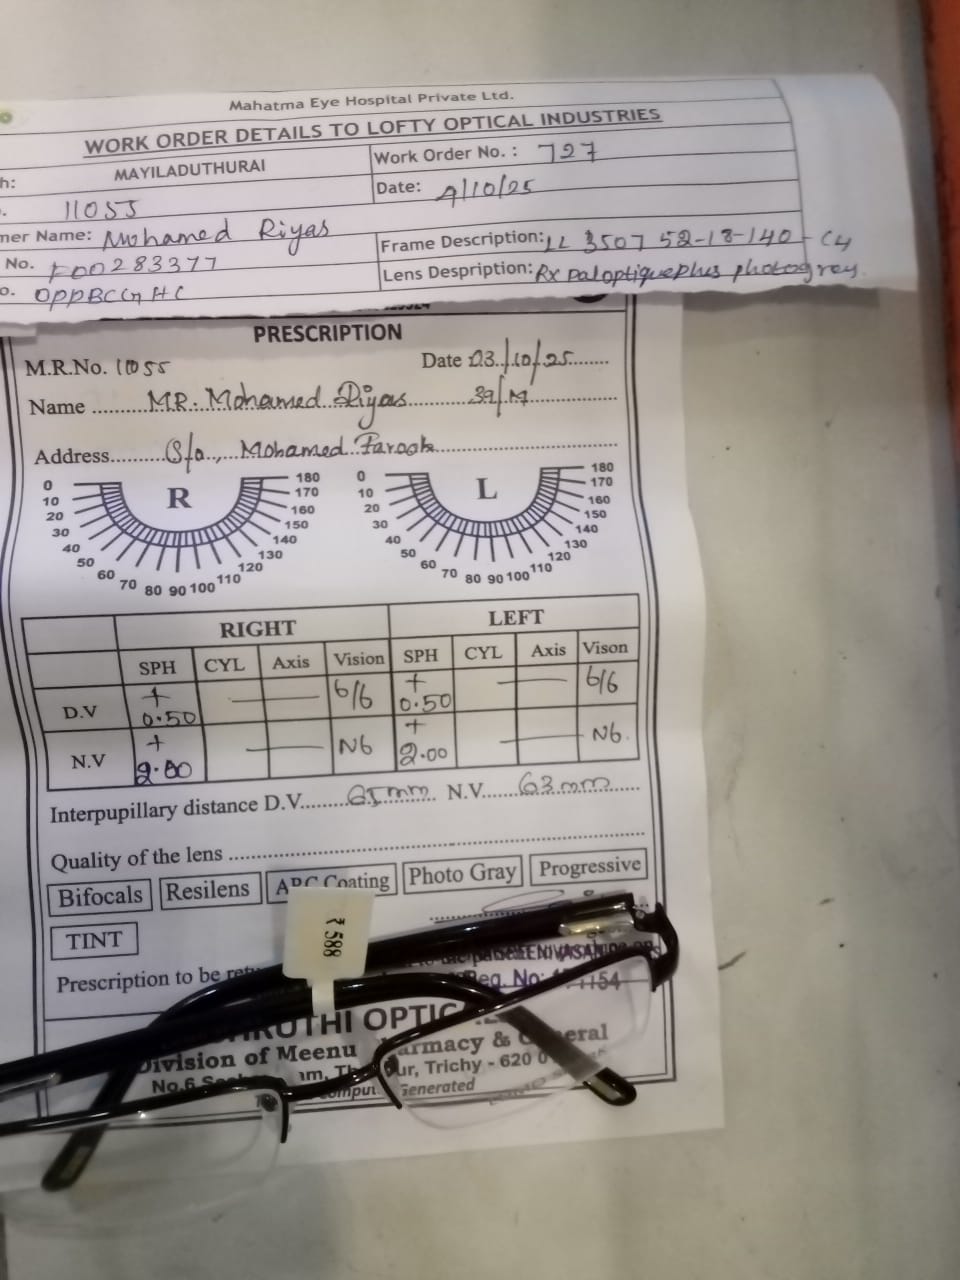 Mahatma Eye Hospital Private Ltd.
WORK ORDER DETAILS TO LOFTY OPTICAL INDUSTRIES
h: MAYILADUTHURAI Work Order No. : 727
11055 Date: 4/10/25
mer Name: Mohamed Riyas Frame Description: LL 3507 52-18-140-C4
No. F00283377 Lens Despription: Rx paloptique plus photogrey
o. OPPBCGHC
PRESCRIPTION
M.R.No. 11055 Date 03/10/25
Name MR. Mohamed Riyas 39/M
Address S/o., Mohamed Farook
R L
0 180 0 180
10 170 10 170
20 160 20 160
30 150 30 150
40 140 40 140
50 130 50 130
60 120 60 120
70 80 90 100 110 70 80 90 100 110
RIGHT LEFT
SPH CYL Axis Vision SPH CYL Axis Vison
D.V + 0.50 — — 6/6 + 0.50 — — 6/6
N.V + 2.00 — — N6 + 2.00 — — N6.
Interpupillary distance D.V. 65mm N.V. 63mm
Quality of the lens
Bifocals Resilens ARC Coating Photo Gray Progressive
TINT
₹ 588
Prescription to be
Reg. No:
OPTIC
Division of Meenu armacy & General
No.6 ur, Trichy - 620 0
Generated